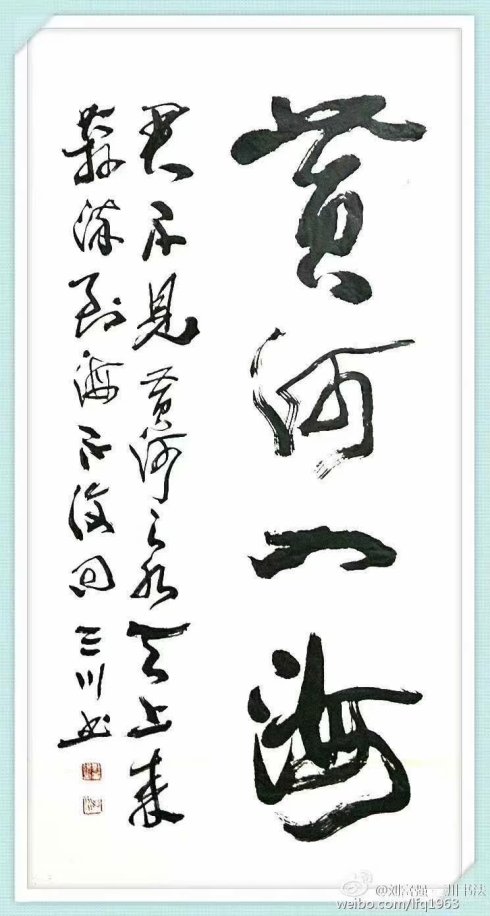 黄河入海
君不見黄河之水天上来
奔流到海不復回 三川书
@刘富强-三川书法
weibo.com/lfq1963